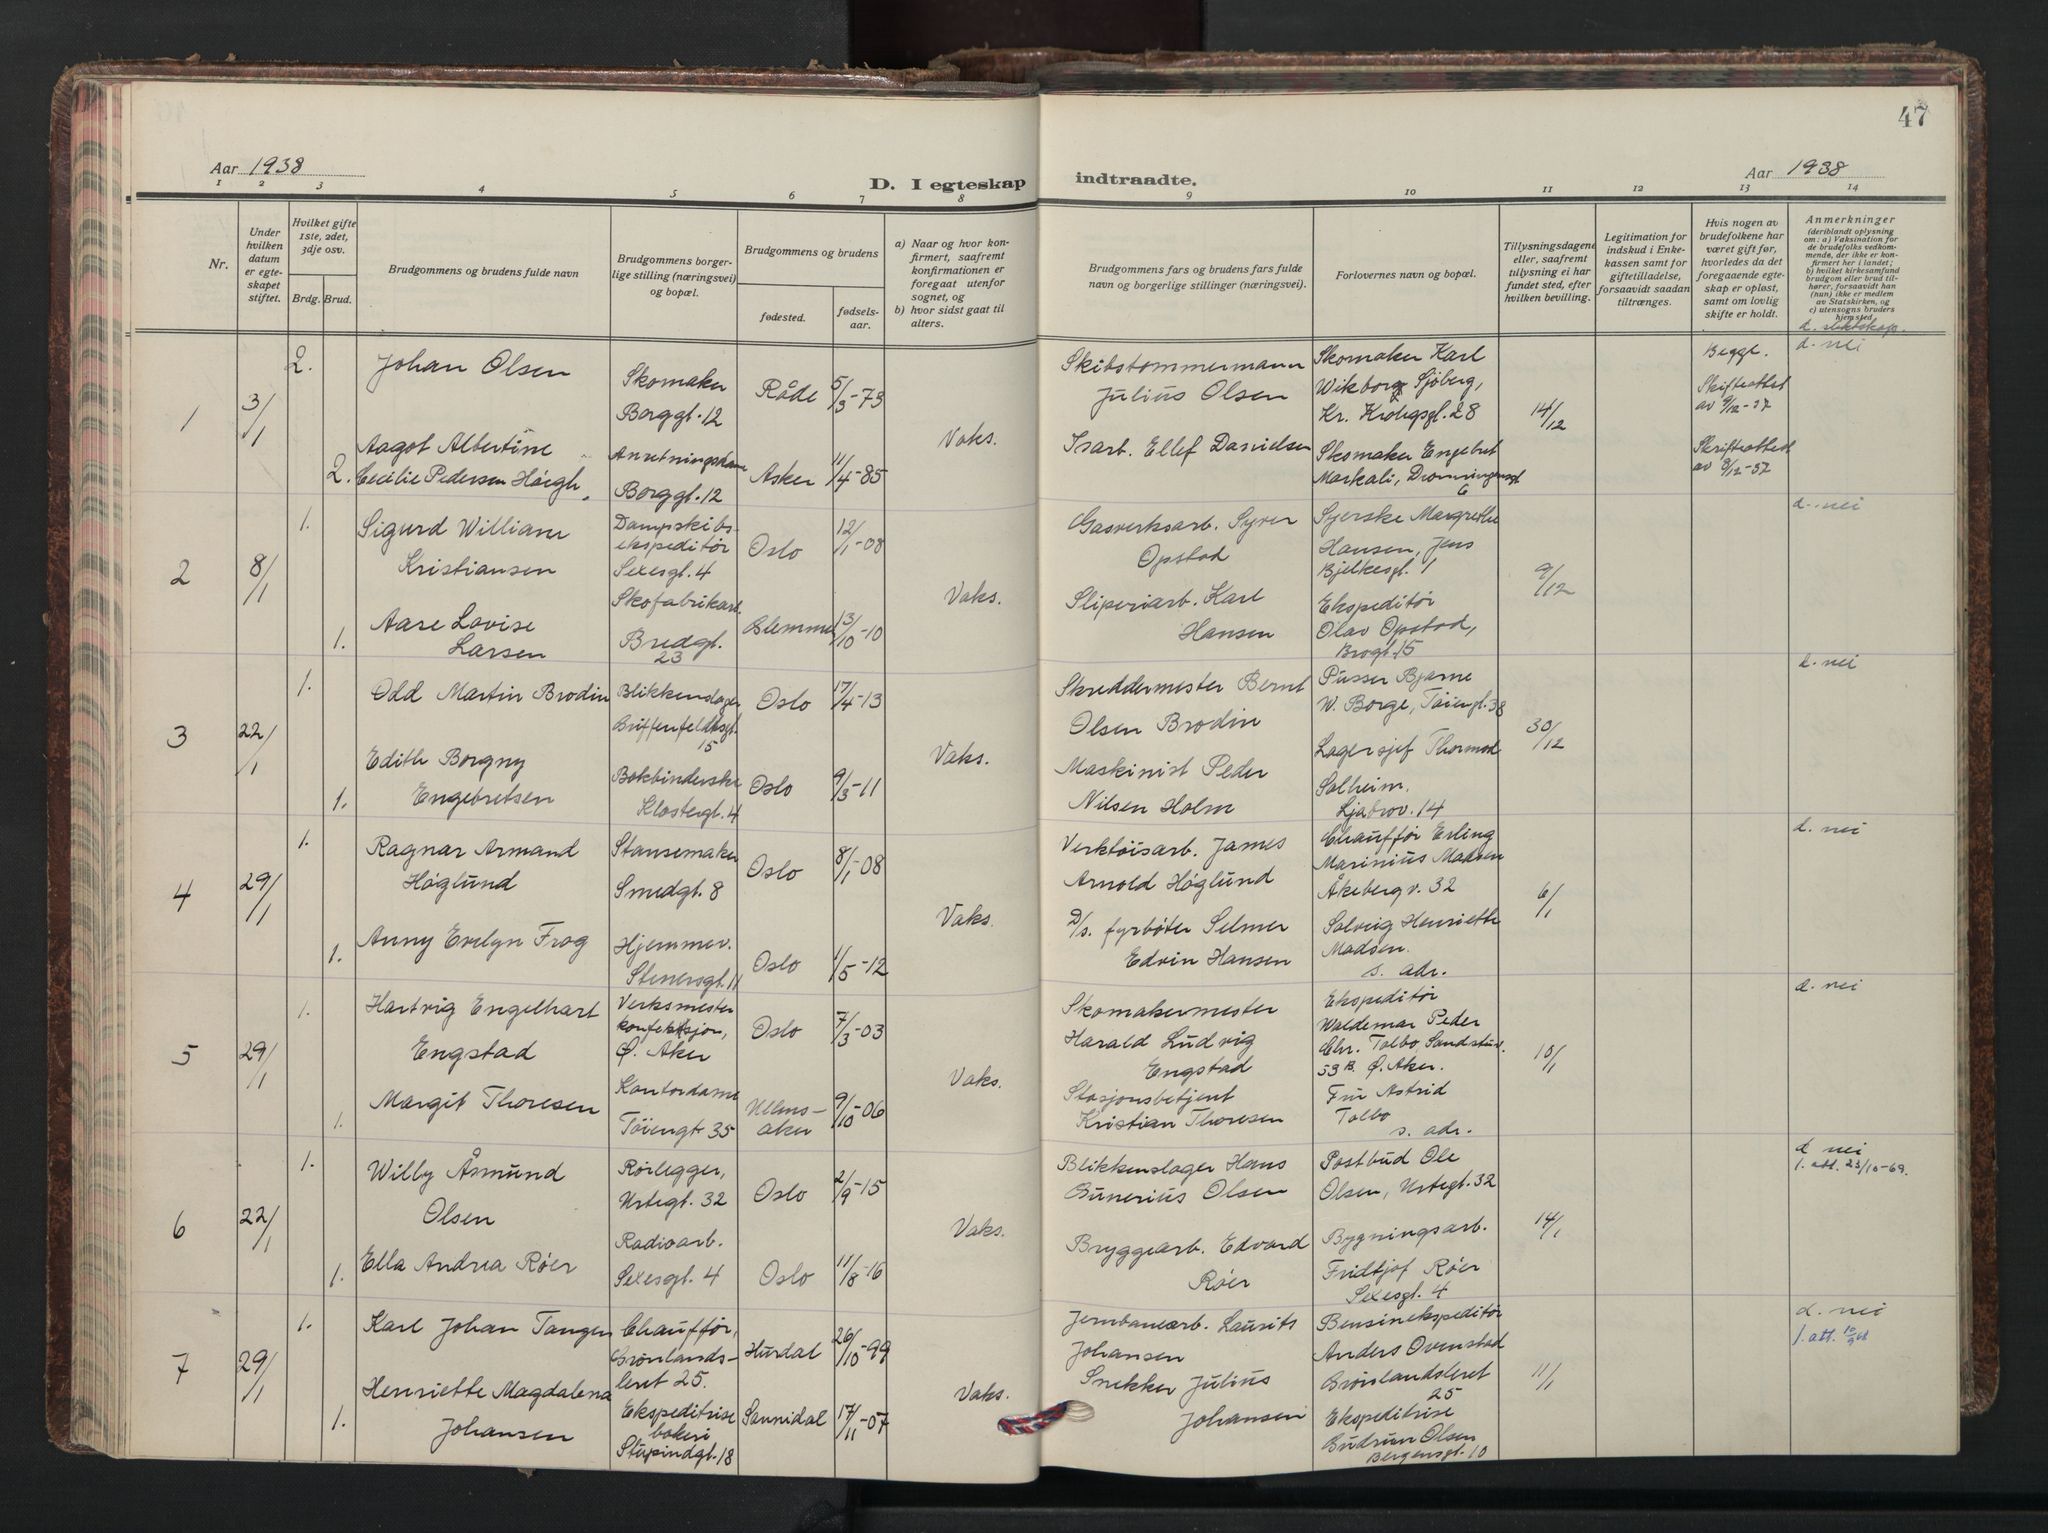 47
Aar 1938
D. I egteskap indtraadte.
Aar 1938
1 2 3 4 5 6 7 8 9 10 11 12 13 14
Nr.
Under hvilken datum er egteskapet stiftet.
Hvilket gifte 1ste, 2det, 3dje osv.
Brdg. Brud.
Brudgommens og brudens fulde navn
Brudgommens borgerlige stilling (næringsvei) og bopæl.
Brudgommens og brudens
fødested. fødselsaar.
a) Naar og hvor konfirmert, saafremt konfirmationen er foregaat utenfor sognet, og
b) hvor sidst gaat til alters.
Brudgommens fars og brudens fars fulde navn og borgerlige stillinger (næringsvei).
Forlovernes navn og bopæl.
Tillysningsdagene eller, saafremt tillysning ei har fundet sted, efter hvilken bevilling.
Legitimation for indskud i Enkekassen samt for giftetilladelse, forsaavidt saadan tiltrænges.
Hvis nogen av brudefolkene har været gift før, hvorledes da det foregaaende egteskap er opløst, samt om lovlig skifte er holdt.
Anmerkninger
(deriblandt oplysning om: a) Vaksination for de brudefolks vedkommende, der ikke er konfirmert her i landet;
b) hvilket kirkesamfund brudgom eller brud tilhører, forsaavidt han (hun) ikke er medlem av Statskirken, og
c) utensogns bruders hjemsted.
d. slektskap.
1
3/1
2.
Johan Olsen
Skomaker
Borggt. 12
Råde
5/3-73
2.
Aagot Albertine
Cecilie Pedersen Høigh
Borggt. 12
Asker
11/4-85
Vaks.
Skibstømmermann
Julius Olsen
Isarb. Ellef Danielsen
Skomaker Karl
Wikborg Sjöberg,
Kr. Krohgsgt. 28
Skomaker Engebret
Markali, Dronningensgt
6
14/12
Begge.
Skifteattest
av 9/12-37
Skifteattest
av 9/12-37
d. nei
2
8/1
1.
Sigurd William
Kristiansen
Dampskibs-
ekspeditør
Sexesgt. 4
Oslo
12/1-08
1.
Aase Lovise
Larsen
Skofabrikarb.
Bredgt.
23
13/10-10
Vaks.
Gasverksarb. Syver
Opstad
Sliperiarb. Karl
Hansen
Syerske Margrethe
Hansen, Jens
Bjelkesgt. 1
Ekspeditør
Olav Opstad,
Brogt. 15
9/12
d. nei
3
22/1
1.
Odd Martin Brodin
Blikkenslager
Griffenfeldtsgt.
15
Oslo
17/4-13
1.
Edith Borgny
Engebretsen
Bokbinderske
Klostergt. 4
Oslo
9/3-11
Vaks.
Skreddermester Bernt
Olsen Brodin
Maskinist Peder
Nilsen Holm
Pusser Bjarne
W. Borge, Tøiengt. 38
Lagersjef Thormod
Solheim.
Ljabrov. 14
30/12
d. nei
4
29/1
1.
Ragnar Armand
Høglund
Stansemaker
Smedgt. 8
Oslo
8/1-08
1.
Anny Evelyn Frog
Hjemmev.
Stenersgt. 11
Oslo
1/5-12
Vaks.
Verktøisarb. James
Arnold Høglund
D/s. fyrbøter Selmer
Edvin Hansen
Chauffør Erling
Marinius Madsen
Åkeberg v. 32
Solveig Henriette
Madsen.
s. adr.
6/1
d. nei
5
29/1
1.
Hartvig Engelhart
Engstad
Verksmester
konfeksjon,
Ø. Aker
Oslo
7/3-03
1.
Margit Thoresen
Kontordame
Tøiengt 35
Ullens-
aker
9/10-06
Vaks.
Skomakermester
Harald Ludvig
Engstad
Stasjonsbetjent
Kristian Thoresen
Ekspeditør
Waldemar Peder
Chr. Talbo,
53B. Ø. Aker.
Fru Astrid
Talbo
s. adr.
10/1
d. nei
6
22/1
1.
Willy Åsmund
Olsen
Rørlegger,
Urtegt. 32
Oslo
2/9-15
1.
Ella Andrea Røer
Radioarb.
Sexesgt. 4
Oslo
11/8-16
Vaks.
Blikkenslager Hans
Gunerius Olsen
Bryggearb. Edvard
Røer
Postbud Ole
Olsen, Urtegt. 32
Bygningsarb.
Fridtjof Røer
Sexesgt. 4
14/1
d nei
1. att. 23/10-69.
7
29/1
1.
Karl Johan Tangen
Chauffør,
Grønlands-
leret 25.
Hurdal
26/10-99
1.
Henriette Magdalena
Johansen
Ekspeditrise
bakeri
Stupindgt. 18
Sannidal
17/11-07
Vaks.
Jernbanearb. Laurits
Johansen
Snekker Julius
Johansen
Bensinekspeditør
Anders Ovenstad
Grønlandsleret
25
Ekspeditrise
Gudrun Olsen
Bergensgt. 10
11/1
d. nei
1. att. 10/9 68